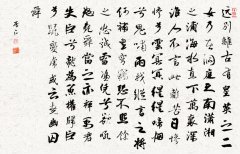 远别離古有皇英之二
女乃在洞庭之南瀟湘
之浦海水直下萬里深
誰人不言此離苦日惨
惨兮雲冥冥猩猩啼烟
兮鬼嘯雨我縱言之将何
補皇穹竊恐不照余
之忠誠雷憑憑兮欲吼
怒堯舜當之亦禅禹君
失臣兮龍為魚權歸臣
兮鼠變虎或云堯幽囚
舜